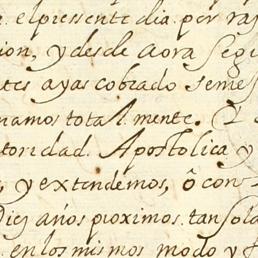 el presente dia por ra
ion, y desde aora segu
tes ayas cobrado semes
namos totalmente. Y
toridad Apostolica y
, y extendemos, ô con
Diez años proximos tan sola
en los mismos modo y f